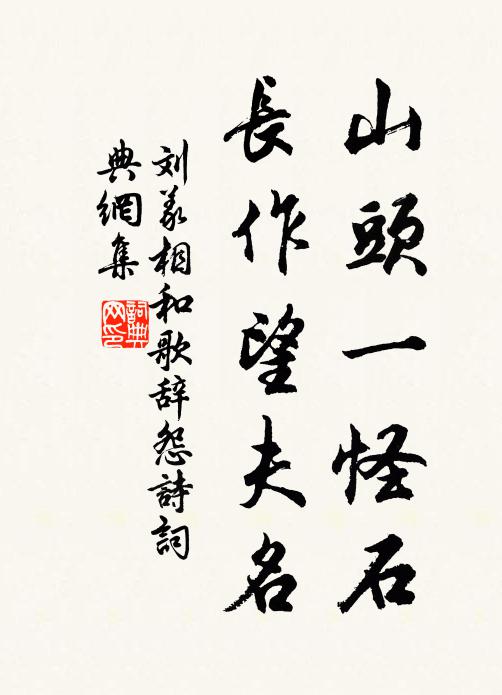 山頭一怪石
長作望夫名
刘義相和歌辞怨詩詞
典網集
詞典
网印